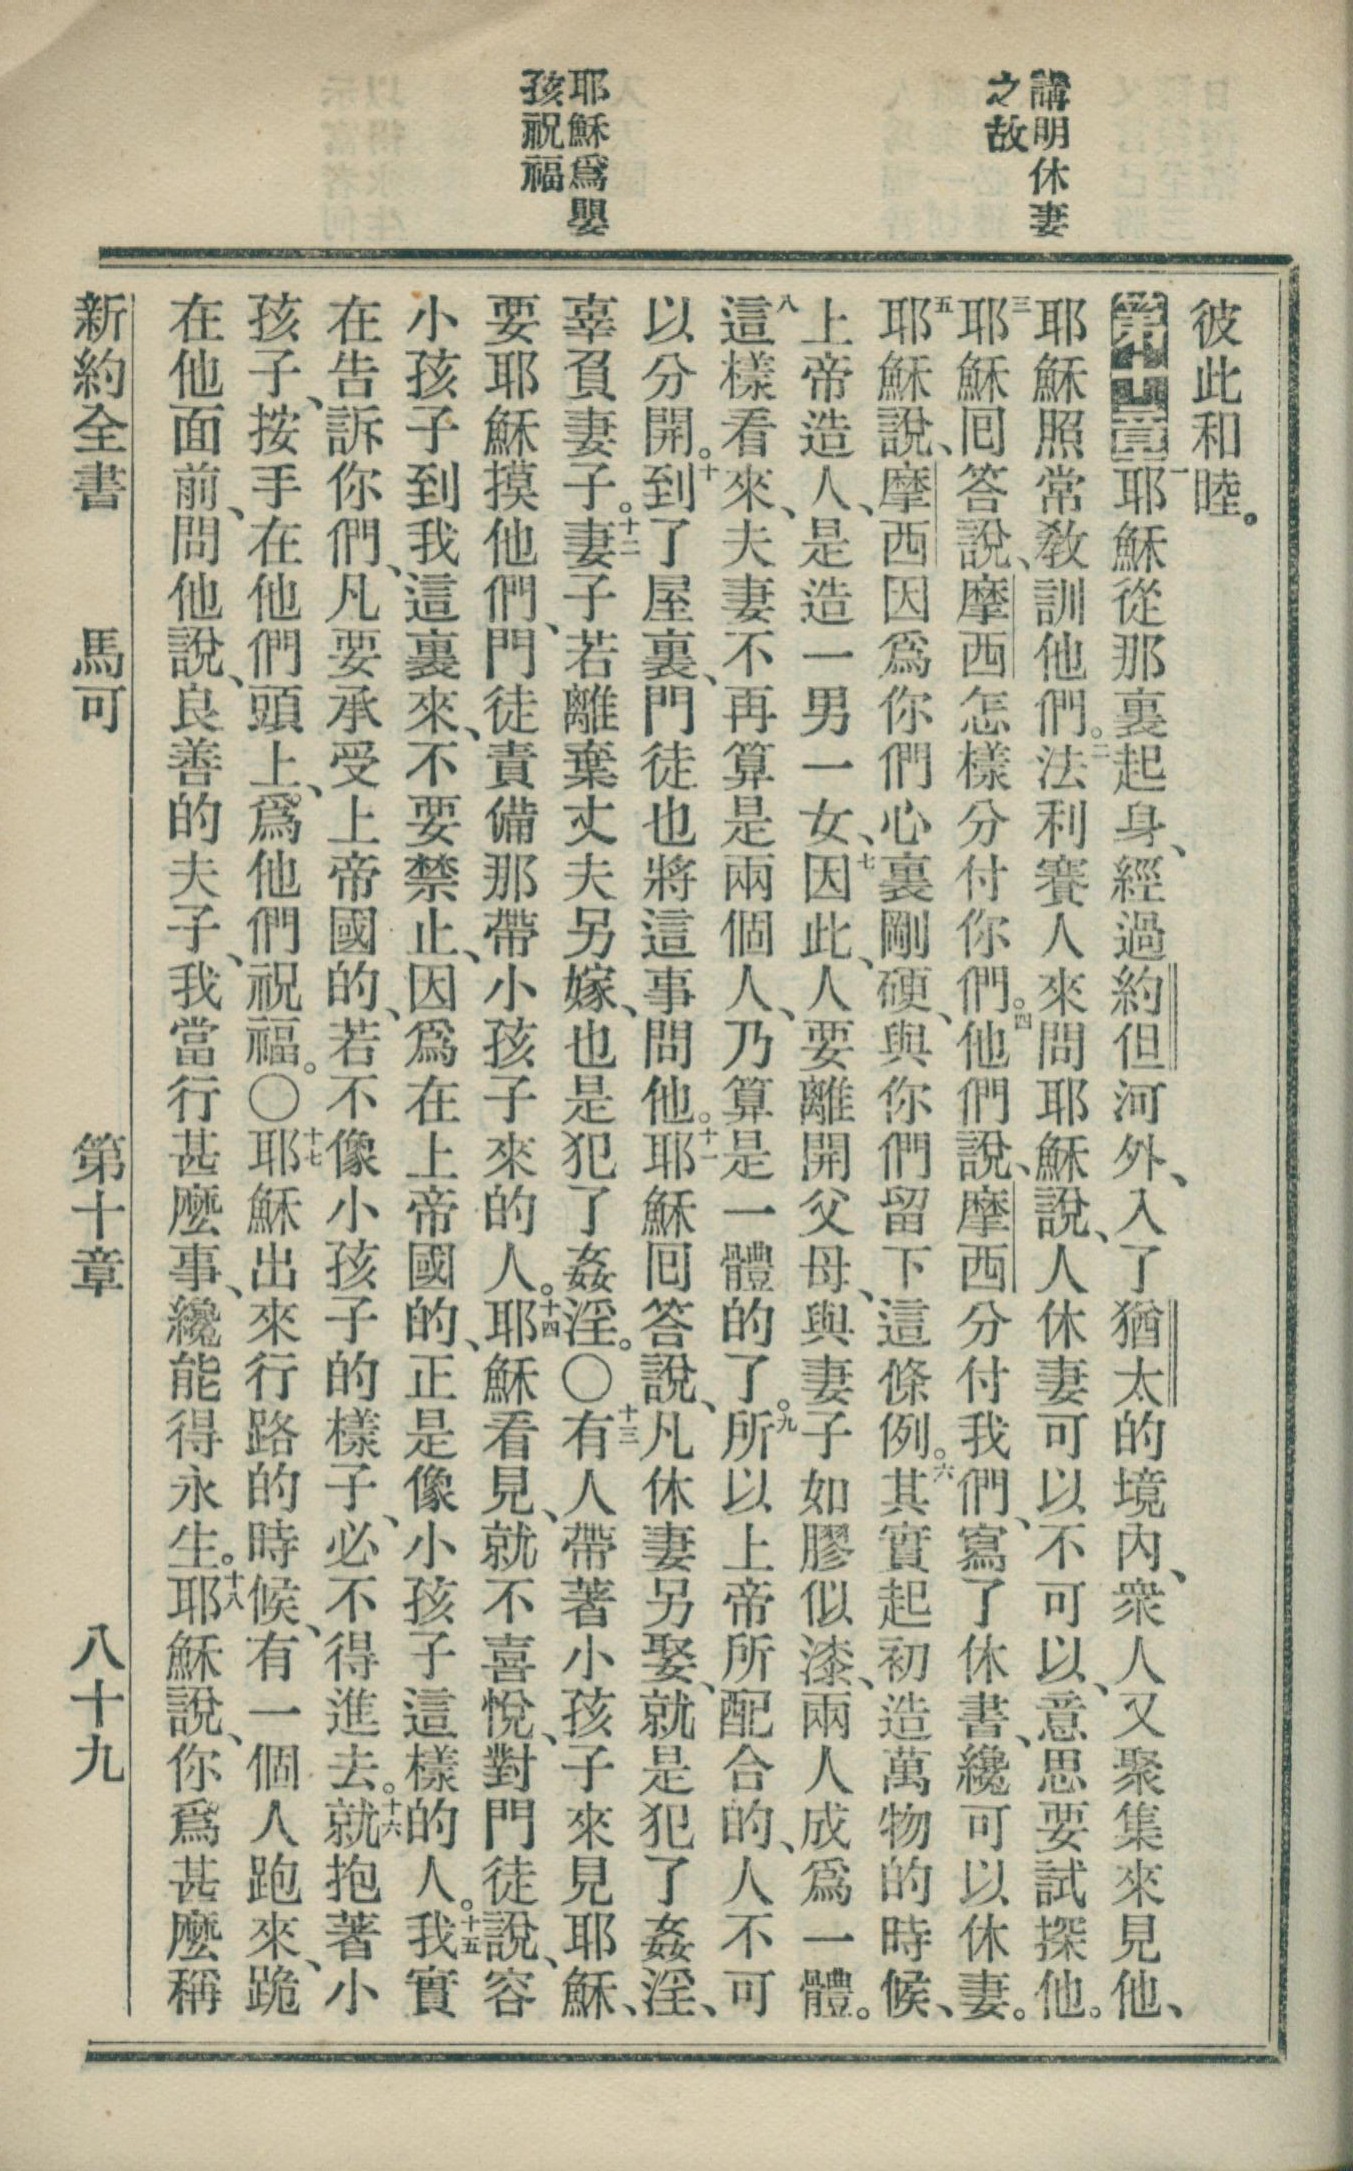 講明休妻
之故
耶穌爲嬰
孩祝福
彼此和睦。
第十章一耶穌從那裏起身、經過約但河外、入了猶太的境內、衆人又聚集來見他、
耶穌照常教訓他們。二法利賽人來問耶穌說、人休妻可以不可以、意思要試探他。
三耶穌回答說、摩西怎樣分付你們。四他們說、摩西分付我們、寫了休書、纔可以休妻。
五耶穌說、摩西因爲你們心裏剛硬、與你們留下這條例。六其實起初造萬物的時候、
上帝造人、是造一男一女、七因此、人要離開父母、與妻子如膠似漆、兩人成爲一體。
八這樣看來、夫妻不再算是兩個人、乃算是一體的了。九所以上帝所配合的、人不可
以分開。十到了屋裏、門徒也將這事問他。十一耶穌回答說、凡休妻另娶、就是犯了姦淫、
辜負妻子。十二妻子若離棄丈夫另嫁、也是犯了姦淫。〇十三有人帶著小孩子來見耶穌、
要耶穌摸他們、門徒責備那帶小孩子來的人。十四耶穌看見、就不喜悅、對門徒說、容
小孩子到我這裏來、不要禁止、因爲在上帝國的、正是像小孩子這樣的人。十五我實
在告訴你們、凡要承受上帝國的、若不像小孩子的樣子、必不得進去。十六就抱著小
孩子、按手在他們頭上、爲他們祝福。〇十七耶穌出來行路的時候、有一個人跑來、跪
在他面前、問他說、良善的夫子、我當行甚麼事、纔能得永生。十八耶穌說、你爲甚麼稱
新約全書 馬可 第十章 八十九